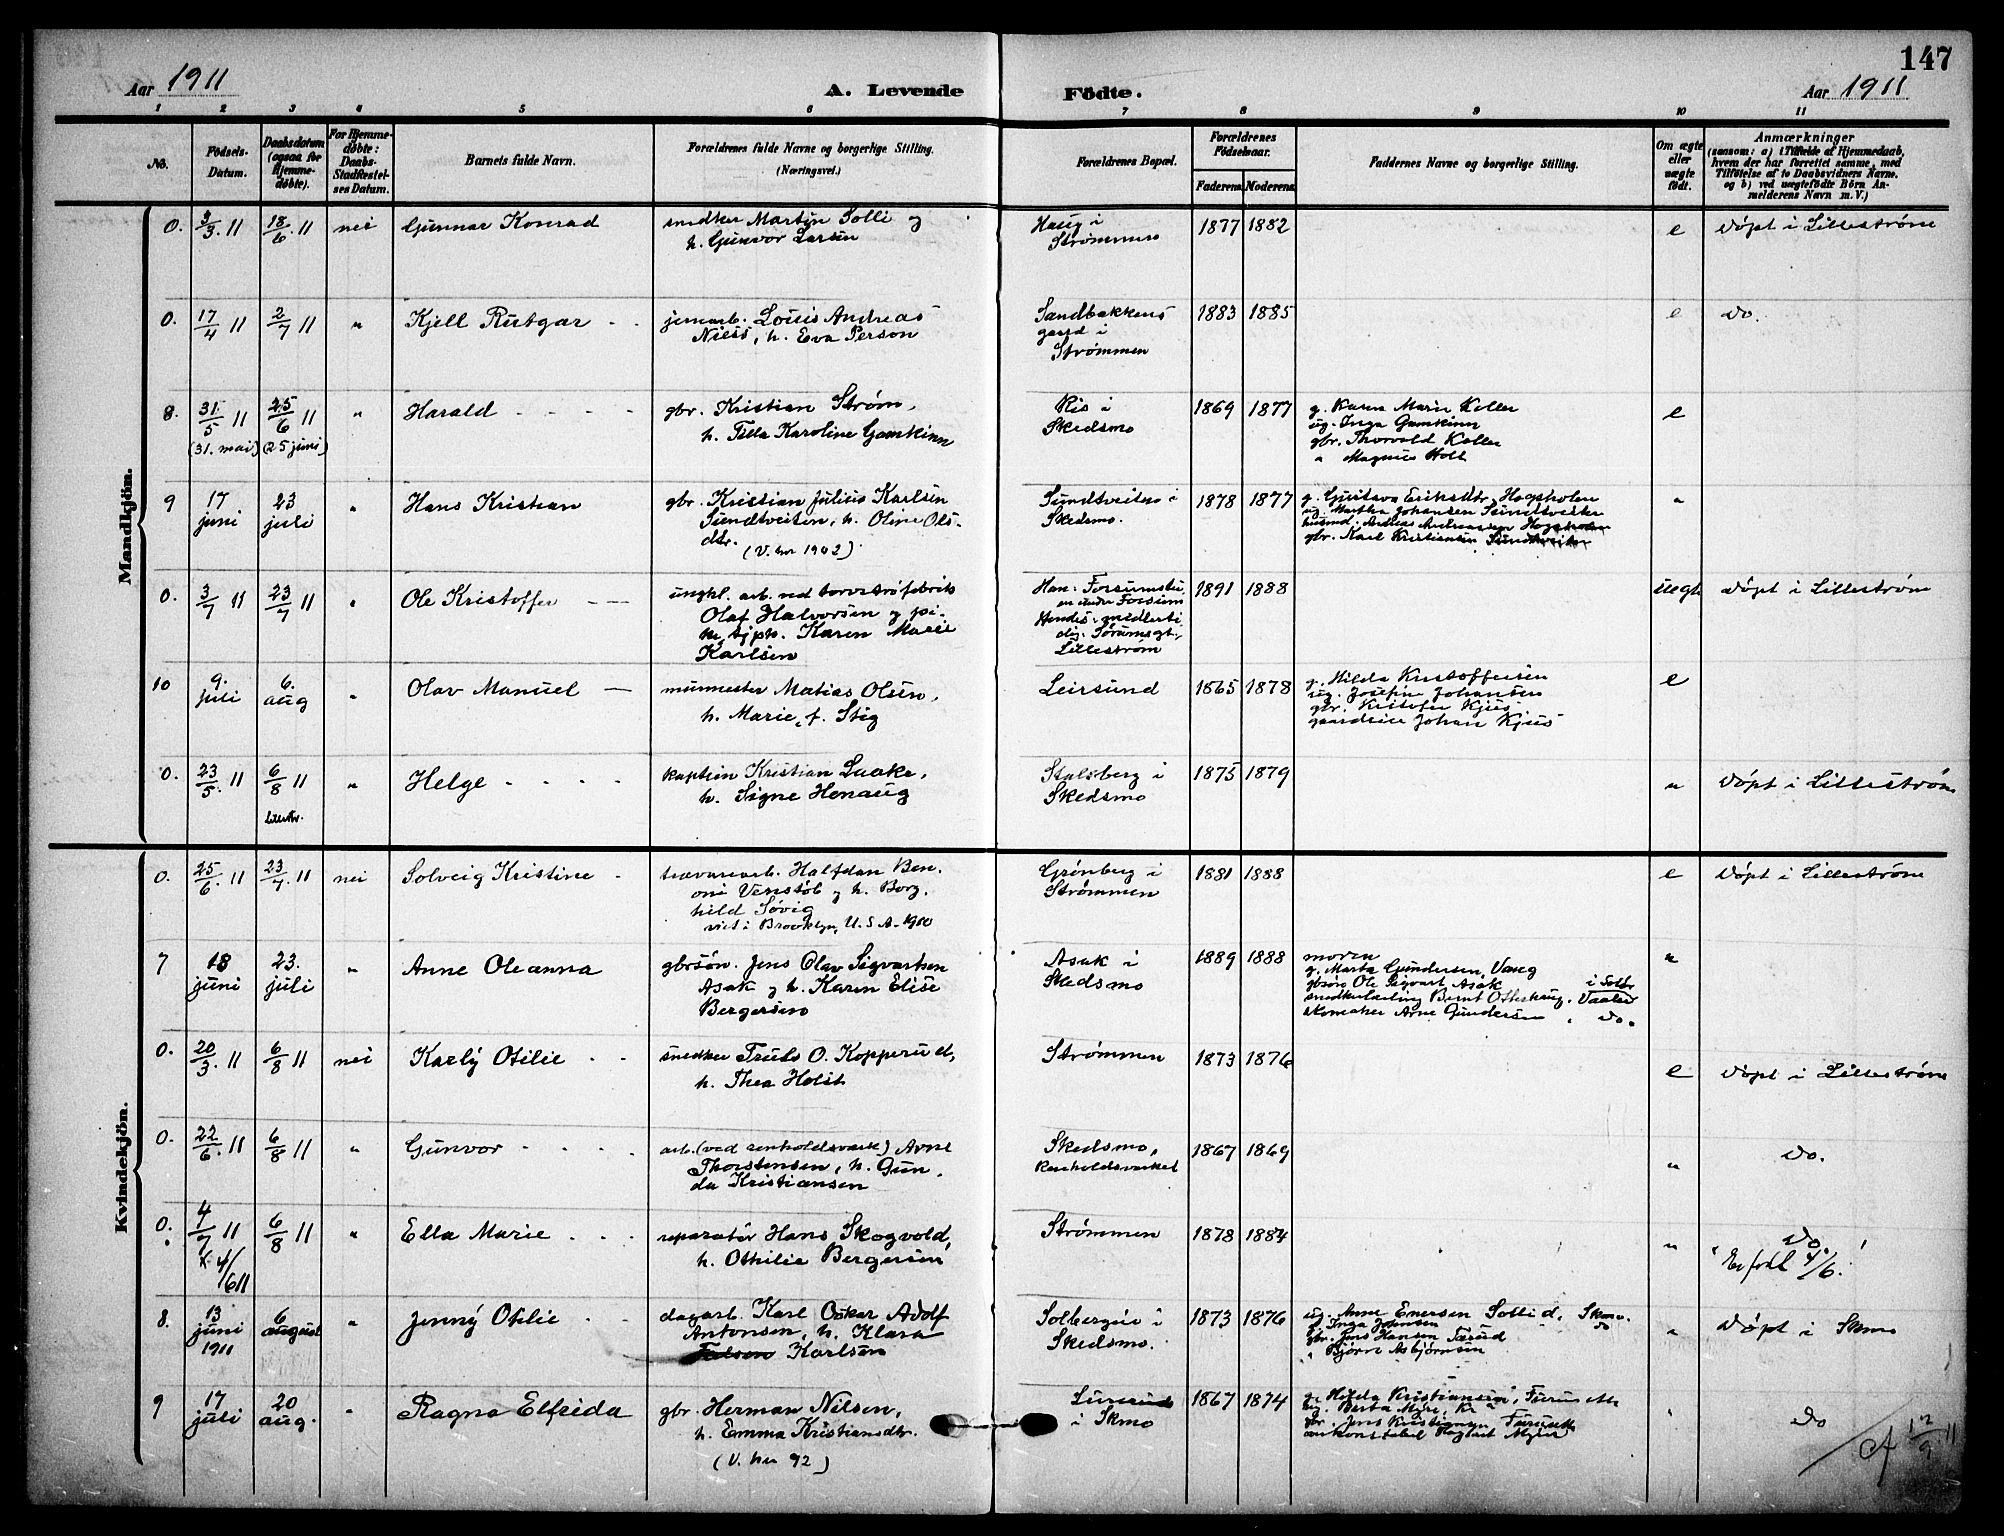 147
Aar 1911 A. Levende Födte. Aar 1911
1 2 3 4 5 6 7 8 9 10 11
No. Födsels-Datum. Daabsdatum (ogsaa for Hjemmedøbte). For Hjemmedøbte: Daabs-Stadfæstelses Datum. Barnets fulde Navn. Forældrenes fulde Navne og borgerlige Stilling. (Næringsvei.) Forældrenes Bopæl. Forældrenes Födselsaar. Faderens Moderens Faddernes Navne og borgerlige Stilling. Om ægte eller uægte födt. Anmærkninger (saasom: a) i Tilfælde af Hjemmedaab, hvem der har forrettet samme, med Tilföielse af to Daabsvidners Navne, og b) ved uægtefödte Börn Anmelderens Navn m. V.)
Mandkjön.
0. 3/3 11 18/6 11 nei Gunnar Konrad snedker Martin Solli og h. Gunvor Larsen Haug i Strømmen 1877 1882 e Døpt i Lillestrøm
0. 17/4 11 2/7 11 " Kjell Rutgar jernarb. Louis Andreas Niess, h. Eva Person Sandbakkens gaard i Strømmen 1883 1885 e Do.
8. 31/5 11 (31. mai) 25/6 11 (25 juni) " Harald gbr. Kristian Strøm, h. Tilla Karoline Gamkinn Ris i Skedsmo 1869 1877 g. Karen Marie Koller
ug. Inga Gamkinn
gbr. Thorvald Koller
" Magnus Holt e
9 17 juni 23 juli " Hans Kristian gbr. Kristian Julius Karlsen Sundtveiten, h. Oline Olsdtr. (V. her 1902) Sundtveiten i Skedsmo. 1878 1877 g. Gustava Eriksdtr. Hogsholen
ug. Martha Johansen Sundtveiten
husmd. Andreas Andreassen Hogsholen
gbr. Karl Kristiansen Sundtveiten "
0. 3/7 11 23/7 11 " Ole Kristoffer ungkl. arb. ved torvstrøfabrik Olaf Halvorsen og pike, tjpk. Karen Marie Karlsen Han: Fossum
Hendes: midlertidig: Sørumsgt., Lillestrøm 1891 1888 uegt Døpt i Lillestrøm
10 9. juli 6. aug " Olav Manuel murmester Matias Olsen, h. Marie, f. Stig Leirsund 1865 1878 g. Hilda Kristoffersen
ug. Josefine Johansen
gbr. Kristofer Kjus
gaardeier Johan Kjus e
0. 23/5. 11 6/8 11 Lillestr. " Helge kaptein Kristian Laake, h. Signe Henaug Stalsberg i Skedsmo 1875 1879 " Døpt i Lillestrøm
Kvindekjön.
0. 25/6. 11 23/7. 11 nei Solveig Kristine trævarearb. Halfdan Benoni Venstøb og h. Borghild Søvig viet i Brooklyn, U.S.A. 1910 Grønberg i Strømmen 1881 1888 e Døpt i Lillestrøm
7 18 juni 23. juli " Anne Oleanna gbrsøn. Jens Olav Sigvartsen Asak og h. Karen Elise Bergersen Asak i Skedsmo 1889 1888 moren
g. Marta Gundersen, Vang
gbrsøn Ole Sigvart Asak
snedkerlærling Bernt Otterhaug, i Solør Vaaler
skomaker Arne Gundersen " Do. "
0. 20/3. 11 6/8 11 nei Karly Otilie snedker Truls O. Kopperud, h. Thea Holst Strømmen 1873 1876 e Døpt i Lillestrøm
0. 22/6. 11 6/8 11 " Gunvor arb. (ved renholdsværk) Arne Thorstensen, h. Gunda Kristiansen Skedsmo, Renholdsverket 1867 1869 " Do.
0. 4/7 11 4/6 11 6/8 11 " Ella Marie reparatør Hans Skogvold, h. Othilie Bergersen Strømmen 1878 1884 " Do. Er født 4/6!
8. 13 juni 1911 6 august " Jenny Otilie dagarb. Karl Oskar Adolf Antonsen, h. Klara Karlsen Solbergeie i Skedsmo. 1873 1876 ug. Anne Enersen Sollid, Skmo.
g. Inga Johnsen Do
gbr. Jens Hansen Tærud
" Bjørn Asbjørnsen " Døpt i Skmo
9 17 juli 20 aug. " Ragna Elfrida gbr. Herman Nilsen, h. Emma Kristiansdtr. (V. her 92) i Skmo 1867 1874 g. Hilda Kristiansen, Furuseth
ug. Berta Myre, Kra
gbr. Jens Kristiansen, Furuseth " Do
cf 12/9 11